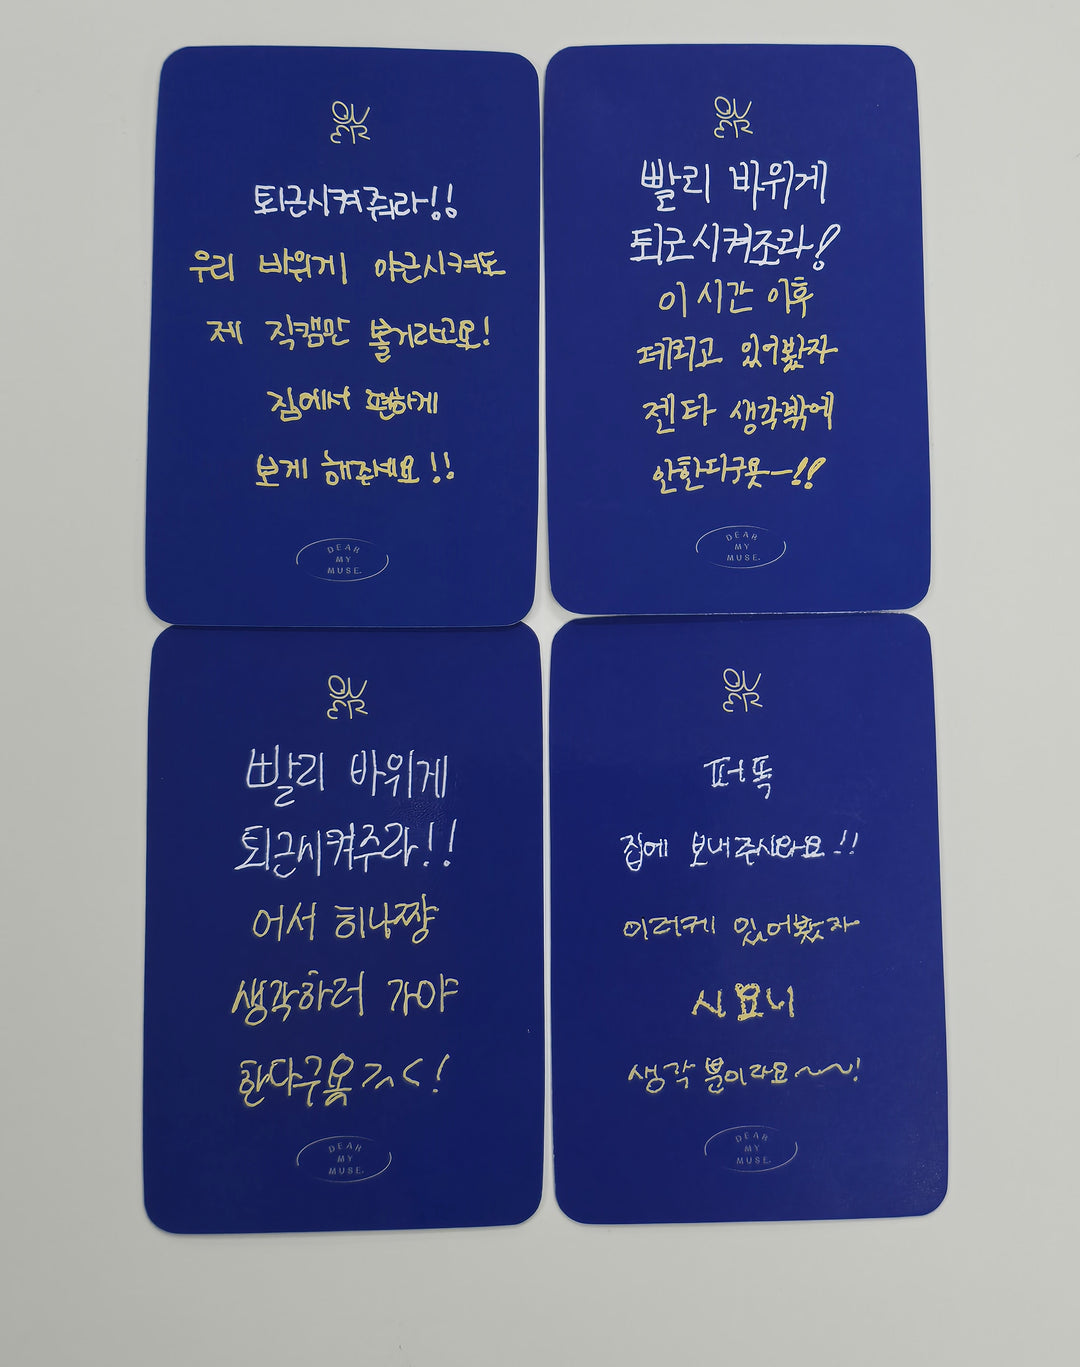 OVER
퇴근시켜줘라!!
우리 바위게 야근시켜도
제 직캠만 볼거라고요!
집에서 편하게
보게 해주세요!!
DEAR
MY
MUSE.
OVER
빨리 바위게
퇴근시켜조라!
이 시간 이후
데리고 있어봤자
젠타 생각밖에
안한다구욧-!!
DEAR
MY
MUSE.
OVER
빨리 바위게
퇴근시켜주라!!
어서 히나쨩
생각하러 가야
한다구욧>^<!
DEAR
MY
MUSE.
OVER
퍼뜩
집에 보내주시라요!!
이러케 있어봤자
시요니
생각 뿐이라요~~!
DEAR
MY
MUSE.